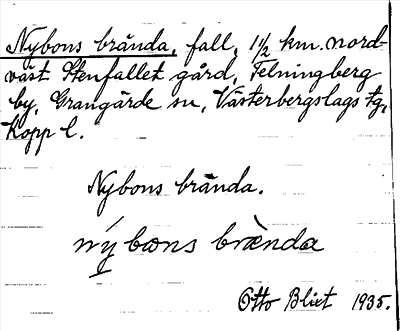 Nybons brända, fall, 1½ km. nord-
väst Stenfallet gård, Felningberg
by, Grangärde sn, Västerbergslags tg,
Kopp. l.
Nybons brända.
nýbons brènda
Otto Blixt 1935.